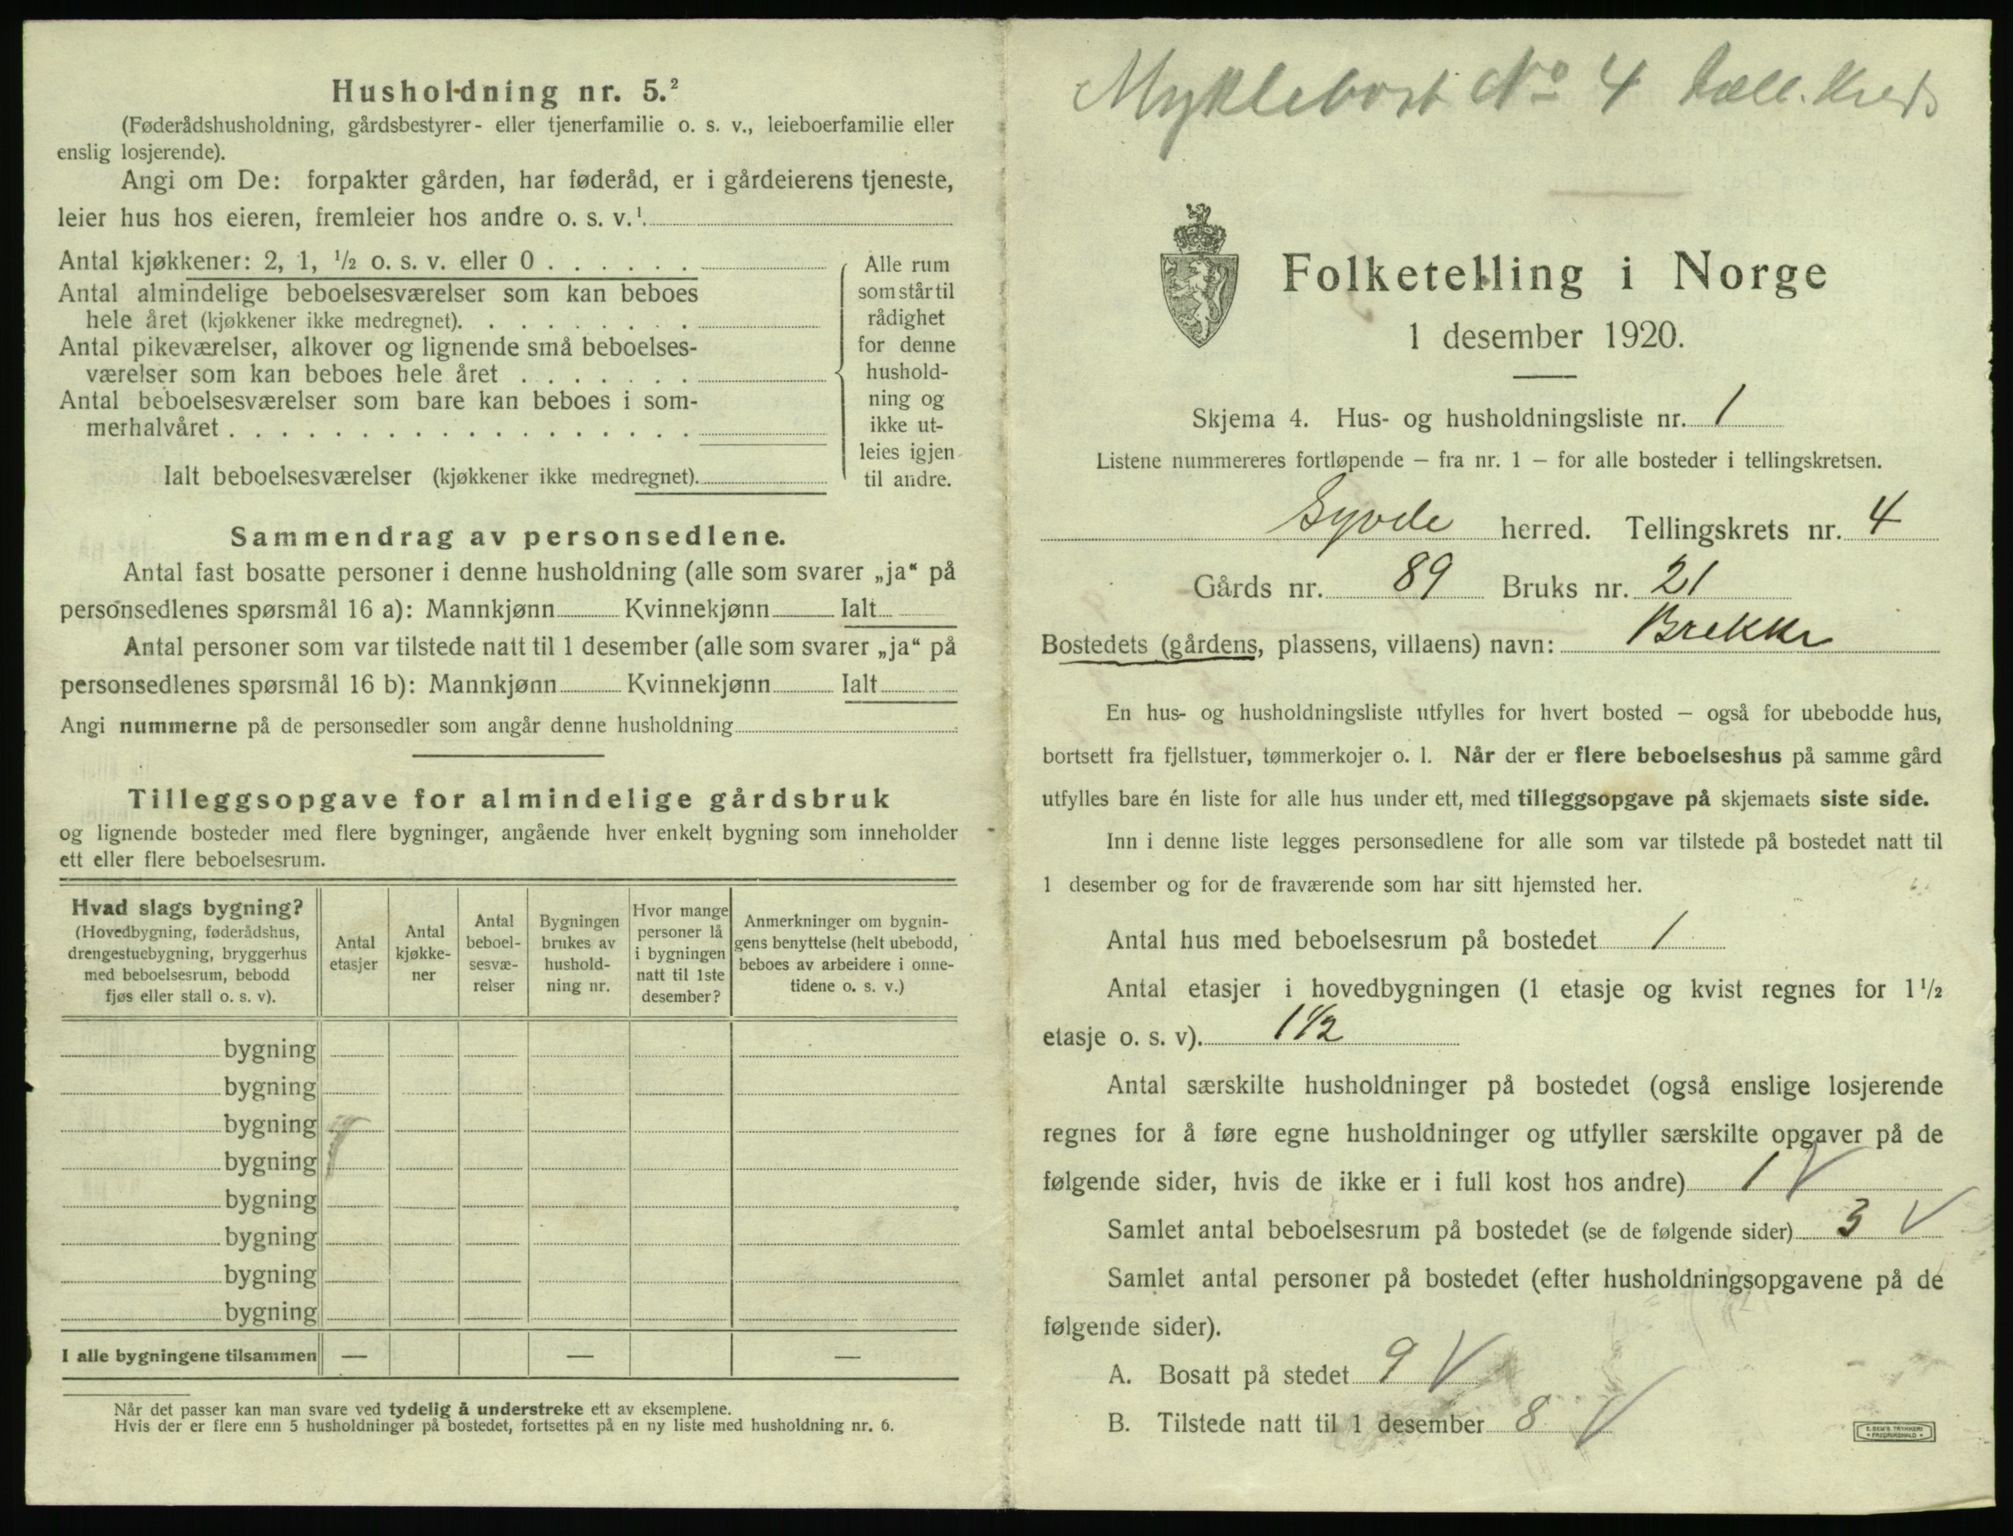 Husholdning nr. 5.²
(Føderådshusholdning, gårdsbestyrer- eller tjenerfamilie o. s. v., leieboerfamilie eller
enslig losjerende).
Angi om De: forpakter gården, har føderåd, er i gårdeierens tjeneste,
leier hus hos eieren, fremleier hos andre o. s. v.¹
Antal kjøkkener: 2, 1, ½ o. s. v. eller 0
Antal almindelige beboelsesværelser som kan beboes
hele året (kjøkkener ikke medregnet).
Antal pikeværelser, alkover og lignende små beboelses-
værelser som kan beboes hele året
Antal beboelsesværelser som bare kan beboes i som-
merhalvåret
Ialt beboelsesværelser (kjøkkener ikke medregnet).
Alle rum
som står til
rådighet
for denne
hushold-
ning og
ikke ut-
leies igjen
til andre.
Sammendrag av personsedlene.
Antal fast bosatte personer i denne husholdning (alle som svarer „ja“ på
personsedlenes spørsmål 16 a): Mannkjønn Kvinnekjønn Ialt
Antal personer som var tilstede natt til 1 desember (alle som svarer „ja“ på
personsedlenes spørsmål 16 b): Mannkjønn Kvinnekjønn Ialt
Angi nummerne på de personsedler som angår denne husholdning
Tilleggsopgave for almindelige gårdsbruk
og lignende bosteder med flere bygninger, angående hver enkelt bygning som inneholder
ett eller flere beboelsesrum.
Hvad slags bygning?
(Hovedbygning, føderådshus,
drengestuebygning, bryggerhus
med beboelsesrum, bebodd
fjøs eller stall o. s. v).
Antal
etasjer
Antal
kjøkke-
ner
Antal
beboel-
sesvæ-
relser
Bygningen
brukes av
hushold-
ning nr.
Hvor mange
personer lå
i bygningen
natt til 1ste
desember?
Anmerkninger om bygnin-
gens benyttelse (helt ubebodd,
beboes av arbeidere i onne-
tidene o. s. v.)
bygning
bygning
bygning
bygning
bygning
bygning
bygning
bygning
I alle bygningene tilsammen — — —
Når det passer kan man svare ved tydelig å understreke ett av eksemplene.
Hvis der er flere enn 5 husholdninger på bostedet, fortsettes på en ny liste med husholdning nr. 6.
Myklebost No 4 tæll. Kreds
Folketelling i Norge
1 desember 1920.
Skjema 4. Hus- og husholdningsliste nr. 1
Listene nummereres fortløpende – fra nr. 1 – for alle bosteder i tellingskretsen.
Syvde herred. Tellingskrets nr. 4
Gårds nr. 89 Bruks nr. 21
Bostedets (gårdens, plassens, villaens) navn: Brekke
En hus- og husholdningsliste utfylles for hvert bosted – også for ubebodde hus,
bortsett fra fjellstuer, tømmerkojer o. l. Når der er flere beboelseshus på samme gård
utfylles bare én liste for alle hus under ett, med tilleggsopgave på skjemaets siste side.
Inn i denne liste legges personsedlene for alle som var tilstede på bostedet natt til
1 desember og for de fraværende som har sitt hjemsted her.
Antal hus med beboelsesrum på bostedet 1
Antal etasjer i hovedbygningen (1 etasje og kvist regnes for 1½
etasje o. s. v). 1½
Antal særskilte husholdninger på bostedet (også enslige losjerende
regnes for å føre egne husholdninger og utfyller særskilte opgaver på de
følgende sider, hvis de ikke er i full kost hos andre) 1 V
Samlet antal beboelsesrum på bostedet (se de følgende sider) 3 V
Samlet antal personer på bostedet (efter husholdningsopgavene på de
følgende sider).
A. Bosatt på stedet 9 V
B. Tilstede natt til 1 desember 8 V
E. SEM'S TRYKKERI
FREDRIKSHALD